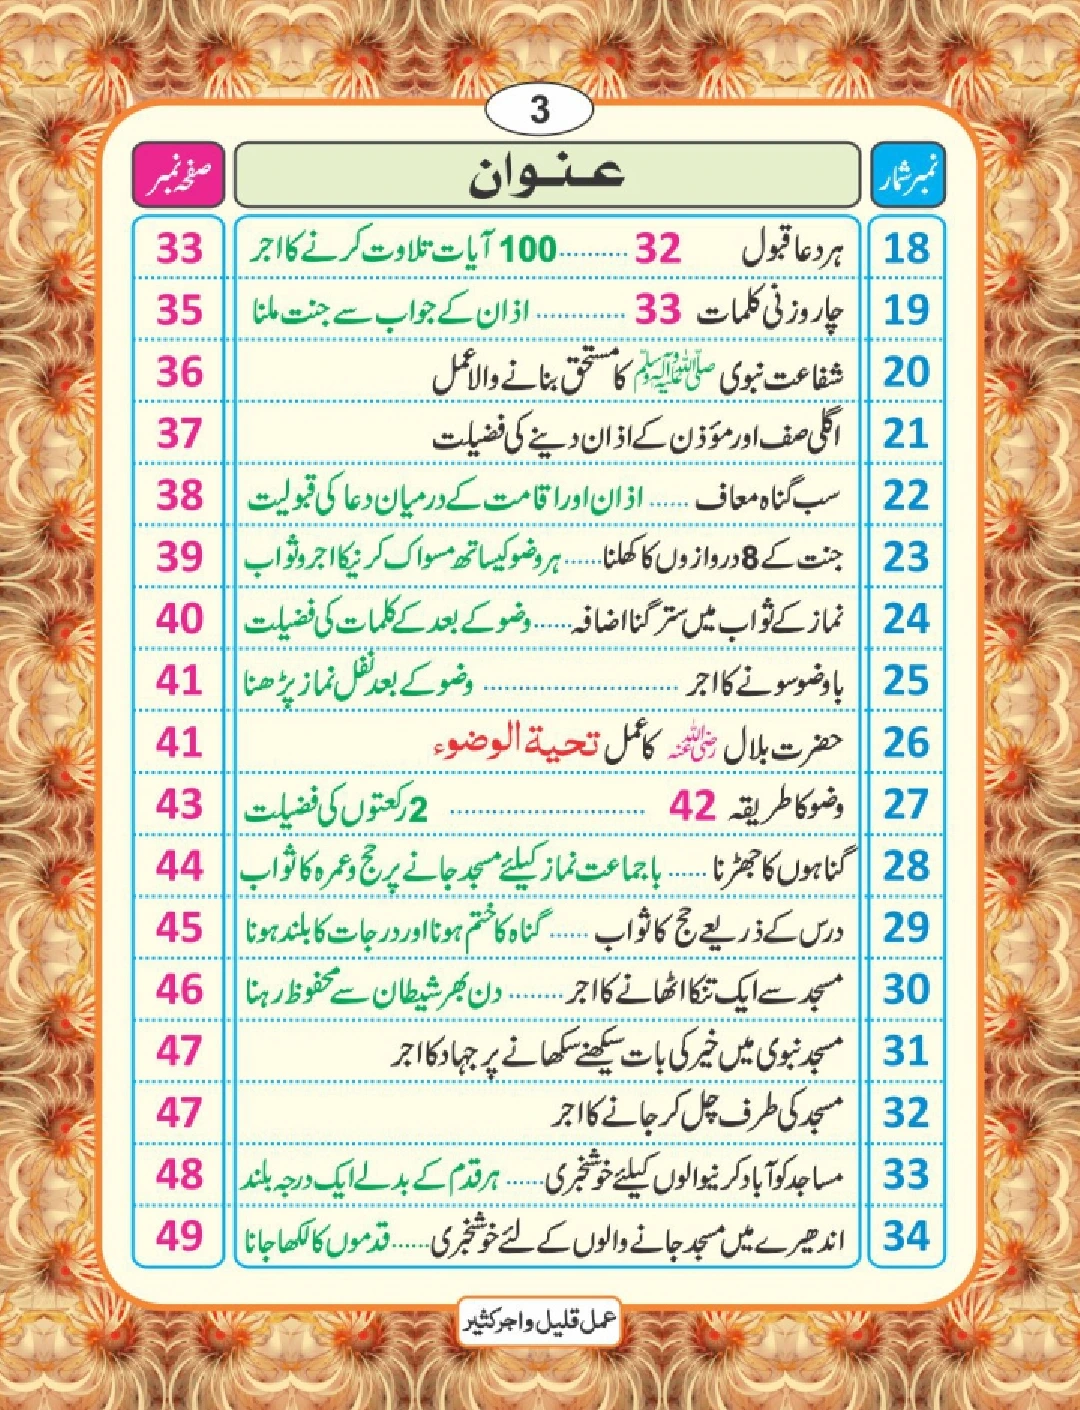 3
نمبر شمار عنوان صفحہ نمبر
18 ہر دعا قبول 32 .......... 100 آیات تلاوت کرنے کا اجر 33
19 چار وزنی کلمات 33 ............ اذان کے جواب سے جنت ملنا 35
20 شفاعت نبوی ﷺ کا مستحق بنانے والا عمل 36
21 اگلی صف اور مؤذن کے اذان دینے کی فضیلت 37
22 سب گناہ معاف ...... اذان اور اقامت کے درمیان دعا کی قبولیت 38
23 جنت کے 8 دروازوں کا کھلنا ...... ہر وضو کیساتھ مسواک کرنیکا اجر و ثواب 39
24 نماز کے ثواب میں ستر گنا اضافہ ...... وضو کے بعد کے کلمات کی فضیلت 40
25 باوضو سونے کا اجر .............................. وضو کے بعد نفل نماز پڑھنا 41
26 حضرت بلال رضی اللہ عنہ کا عمل تحية الوضوء 41
27 وضو کا طریقہ 42 .............................. 2 رکعتوں کی فضیلت 43
28 گناہوں کا جھڑنا ...... باجماعت نماز کیلئے مسجد جانے پر حج و عمرہ کا ثواب 44
29 درس کے ذریعے حج کا ثواب ...... گناہ کا ختم ہونا اور درجات کا بلند ہونا 45
30 مسجد سے ایک تنکا اٹھانے کا اجر ........ دن بھر شیطان سے محفوظ رہنا 46
31 مسجد نبوی میں خیر کی بات سیکھنے سکھانے پر جہاد کا اجر 47
32 مسجد کی طرف چل کر جانے کا اجر 47
33 مساجد کو آباد کرنیوالوں کیلئے خوشخبری ...... ہر قدم کے بدلے ایک درجہ بلند 48
34 اندھیرے میں مسجد جانے والوں کے لئے خوشخبری ...... قدموں کا لکھا جانا 49
عمل قلیل و اجر کثیر